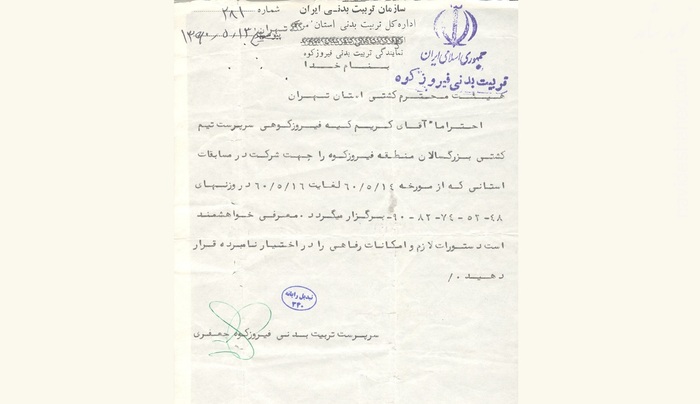 سازمان تربیت بدنی ایران
شماره ۲۸۱
اداره کل تربیت بدنی استان
۱۳۶۰/۵/۱۳
نمایندگی تربیت بدنی فیروزکوه
بنام خدا
جمهوری اسلامی ایران
تربیت بدنی فیروزکوه
هیئت محترم کشتی استان تهران
احتراما" آقای کریم کیه فیروزکوهی سرپرست تیم
کشتی بزرگسالان منطقه فیروزکوه را جهت شرکت در مسابقات
استانی که از مورخه ۶۰/۵/۱۴ لغایت ۶۰/۵/۱۶ در وزنهای
۴۸- ۵۲ - ۷۴ - ۸۲ - ۶۰- برگزار میگردد. معرفی خواهشمند
است دستورات لازم و امکانات رفاهی را در اختیار نامبرده قرار
دهید ./
تبدیل رایانه
۳۴۰
سرپرست تربیت بدنی فیروزکوه جعفری